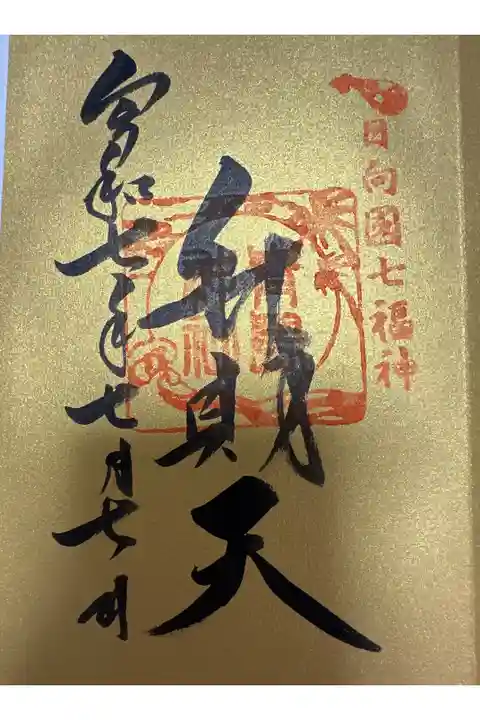 日向國七福神
弁財天
令和七年七月七日